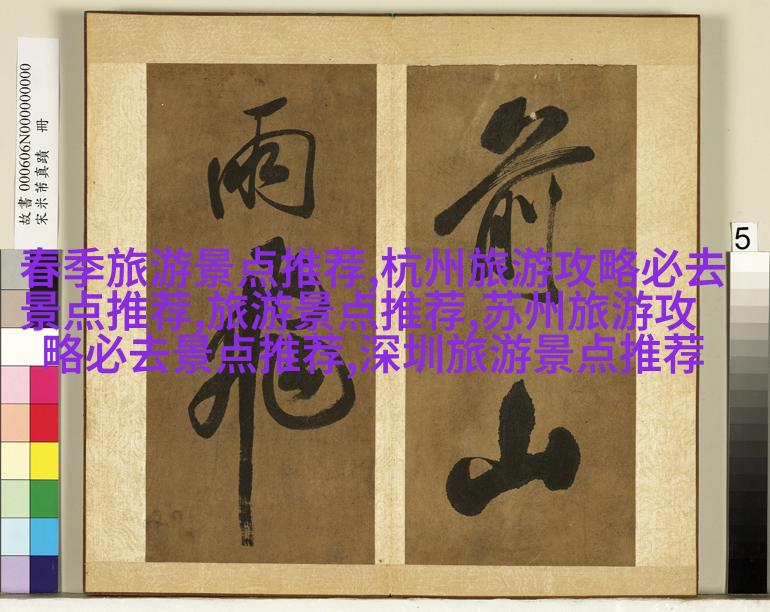 前山
雨飛
故書 000606N000000000
宋米芾真蹟 冊
5
春季旅游景点推荐,杭州旅游攻略必去
景点推荐,旅游景点推荐,苏州旅游攻
略必去景点推荐,深圳旅游景点推荐